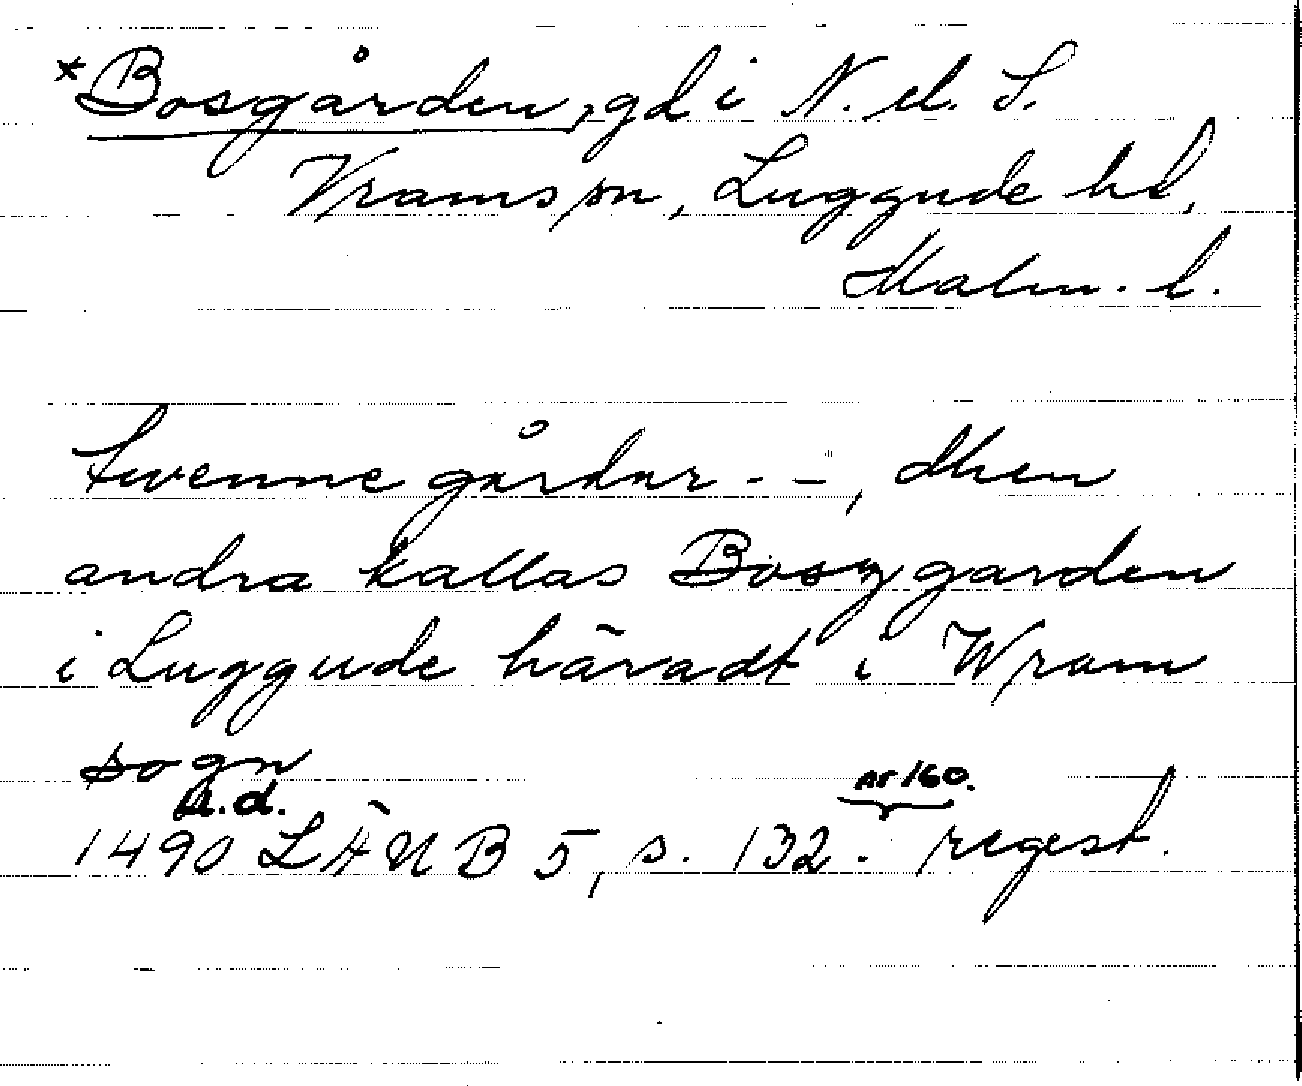 *Bosgården, gd i N. el. S.
Vrams sn, Luggude hd,
Malm. l.
Twenne gårdar - -, dhen
andra kallas Boszgarden
i Luggude häradt i Wram
sogn
u.d. nr 160.
1490 LÄUB 5, s. 132. regest.